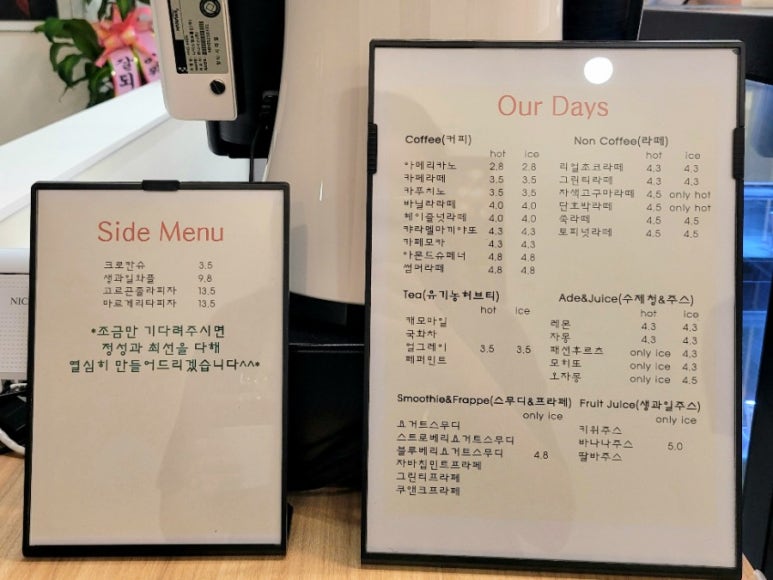 Side Menu
크로칸슈 3.5
생과일와플 9.8
고르곤졸라피자 13.5
마르게리타피자 13.5
*조금만 기다려주시면
정성과 최선을 다해
열심히 만들어드리겠습니다^^*
Our Days
Coffee(커피)
hot ice
아메리카노 2.8 2.8
카페라떼 3.5 3.5
카푸치노 3.5 3.5
바닐라라떼 4.0 4.0
헤이즐넛라떼 4.0 4.0
캬라멜마끼야또 4.3 4.3
카페모카 4.3 4.3
아몬드슈페너 4.8 4.8
썸머라떼 4.8 4.8
Non Coffee(라떼)
hot ice
리얼초코라떼 4.3 4.3
그린티라떼 4.3 4.3
자색고구마라떼 4.5 only hot
단호박라떼 4.5 only hot
쑥라떼 4.5 4.5
토피넛라떼 4.5 4.5
Tea(유기농허브티)
hot ice
캐모마일
국화차
얼그레이 3.5 3.5
페퍼민트
Ade&Juice(수제청&주스)
hot ice
레몬 4.3 4.3
자몽 4.3 4.3
패션후르츠 only ice 4.3
모히또 only ice 4.3
오자몽 only ice 4.5
Smoothie&Frappe(스무디&프라페)
only ice
요거트스무디
스트로베리요거트스무디
블루베리요거트스무디 4.8
자바칩민트프라페
그린티프라페
쿠앤크프라페
Fruit Juice(생과일주스)
only ice
키위주스
바나나주스 5.0
딸바주스
NIC